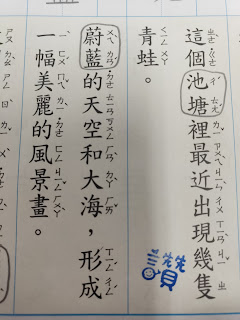 這個池塘裡最近出現幾隻
青蛙。
讚
蔚藍的天空和大海,形成
一幅美麗的風景畫。